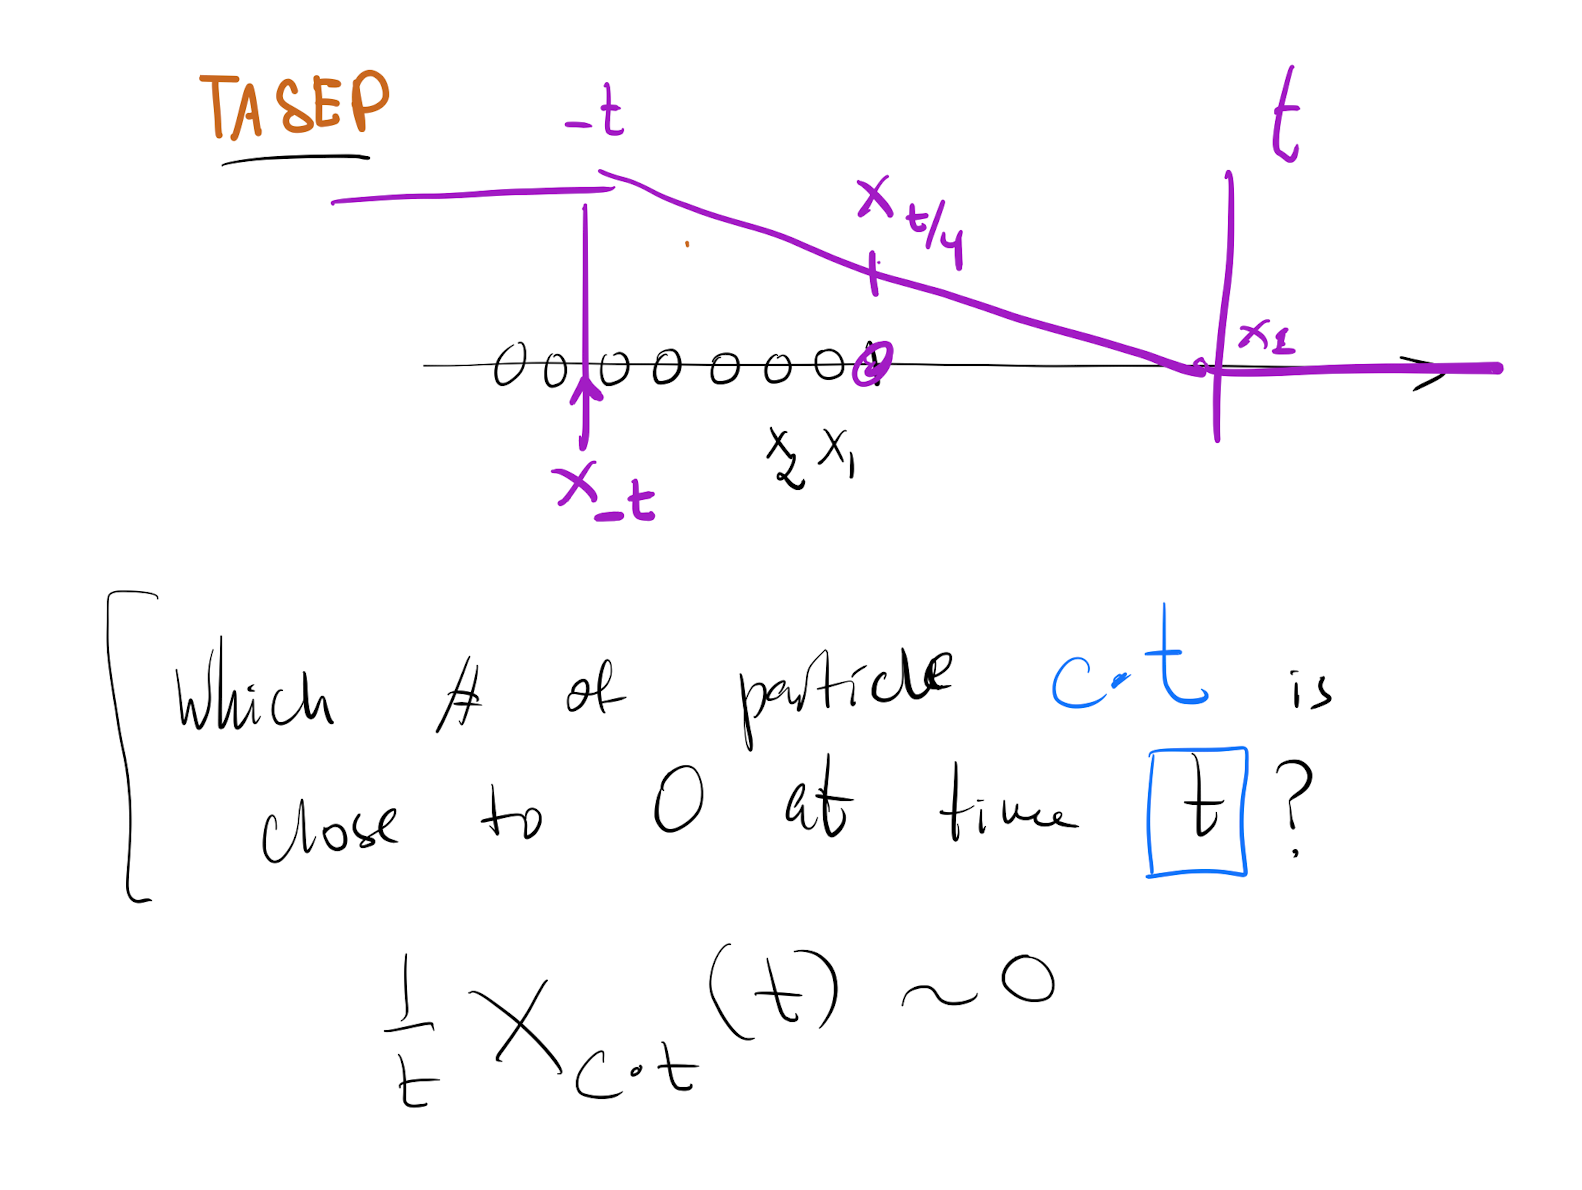 TASEP
-t
t
x_{t/4}
x_1
x_2 x_1
x_{-t}
Which # of particle c·t is
close to 0 at time t ?
\frac{1}{t} x_{c·t}(t) ~ 0